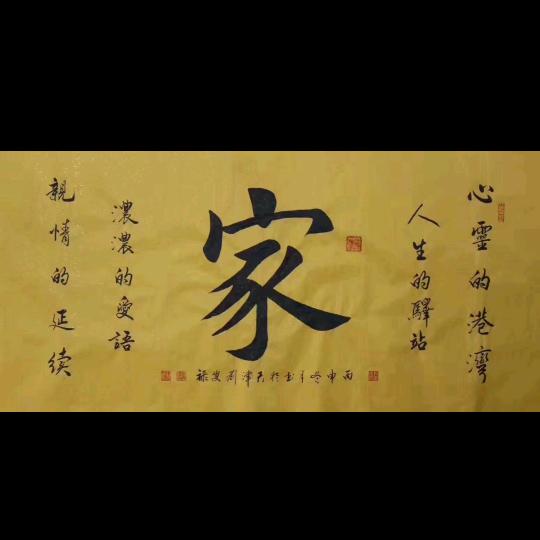 心靈的港灣
人生的驛站
家
濃濃的愛語
親情的延续
丙申冬月书於天津劉